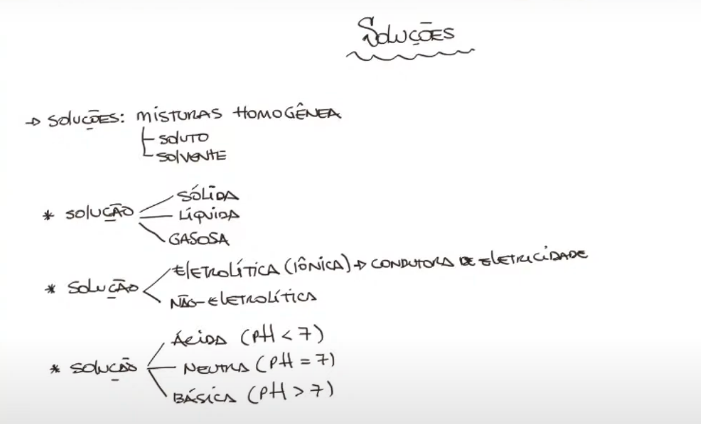 Soluções
→ Soluções: misturas homogênea
soluto
solvente
* solução
sólida
líquida
gasosa
* solução
eletrolítica (iônica) → condutora de eletricidade
não-eletrolítica
* solução
ácida (pH < 7)
neutra (pH = 7)
básica (pH > 7)